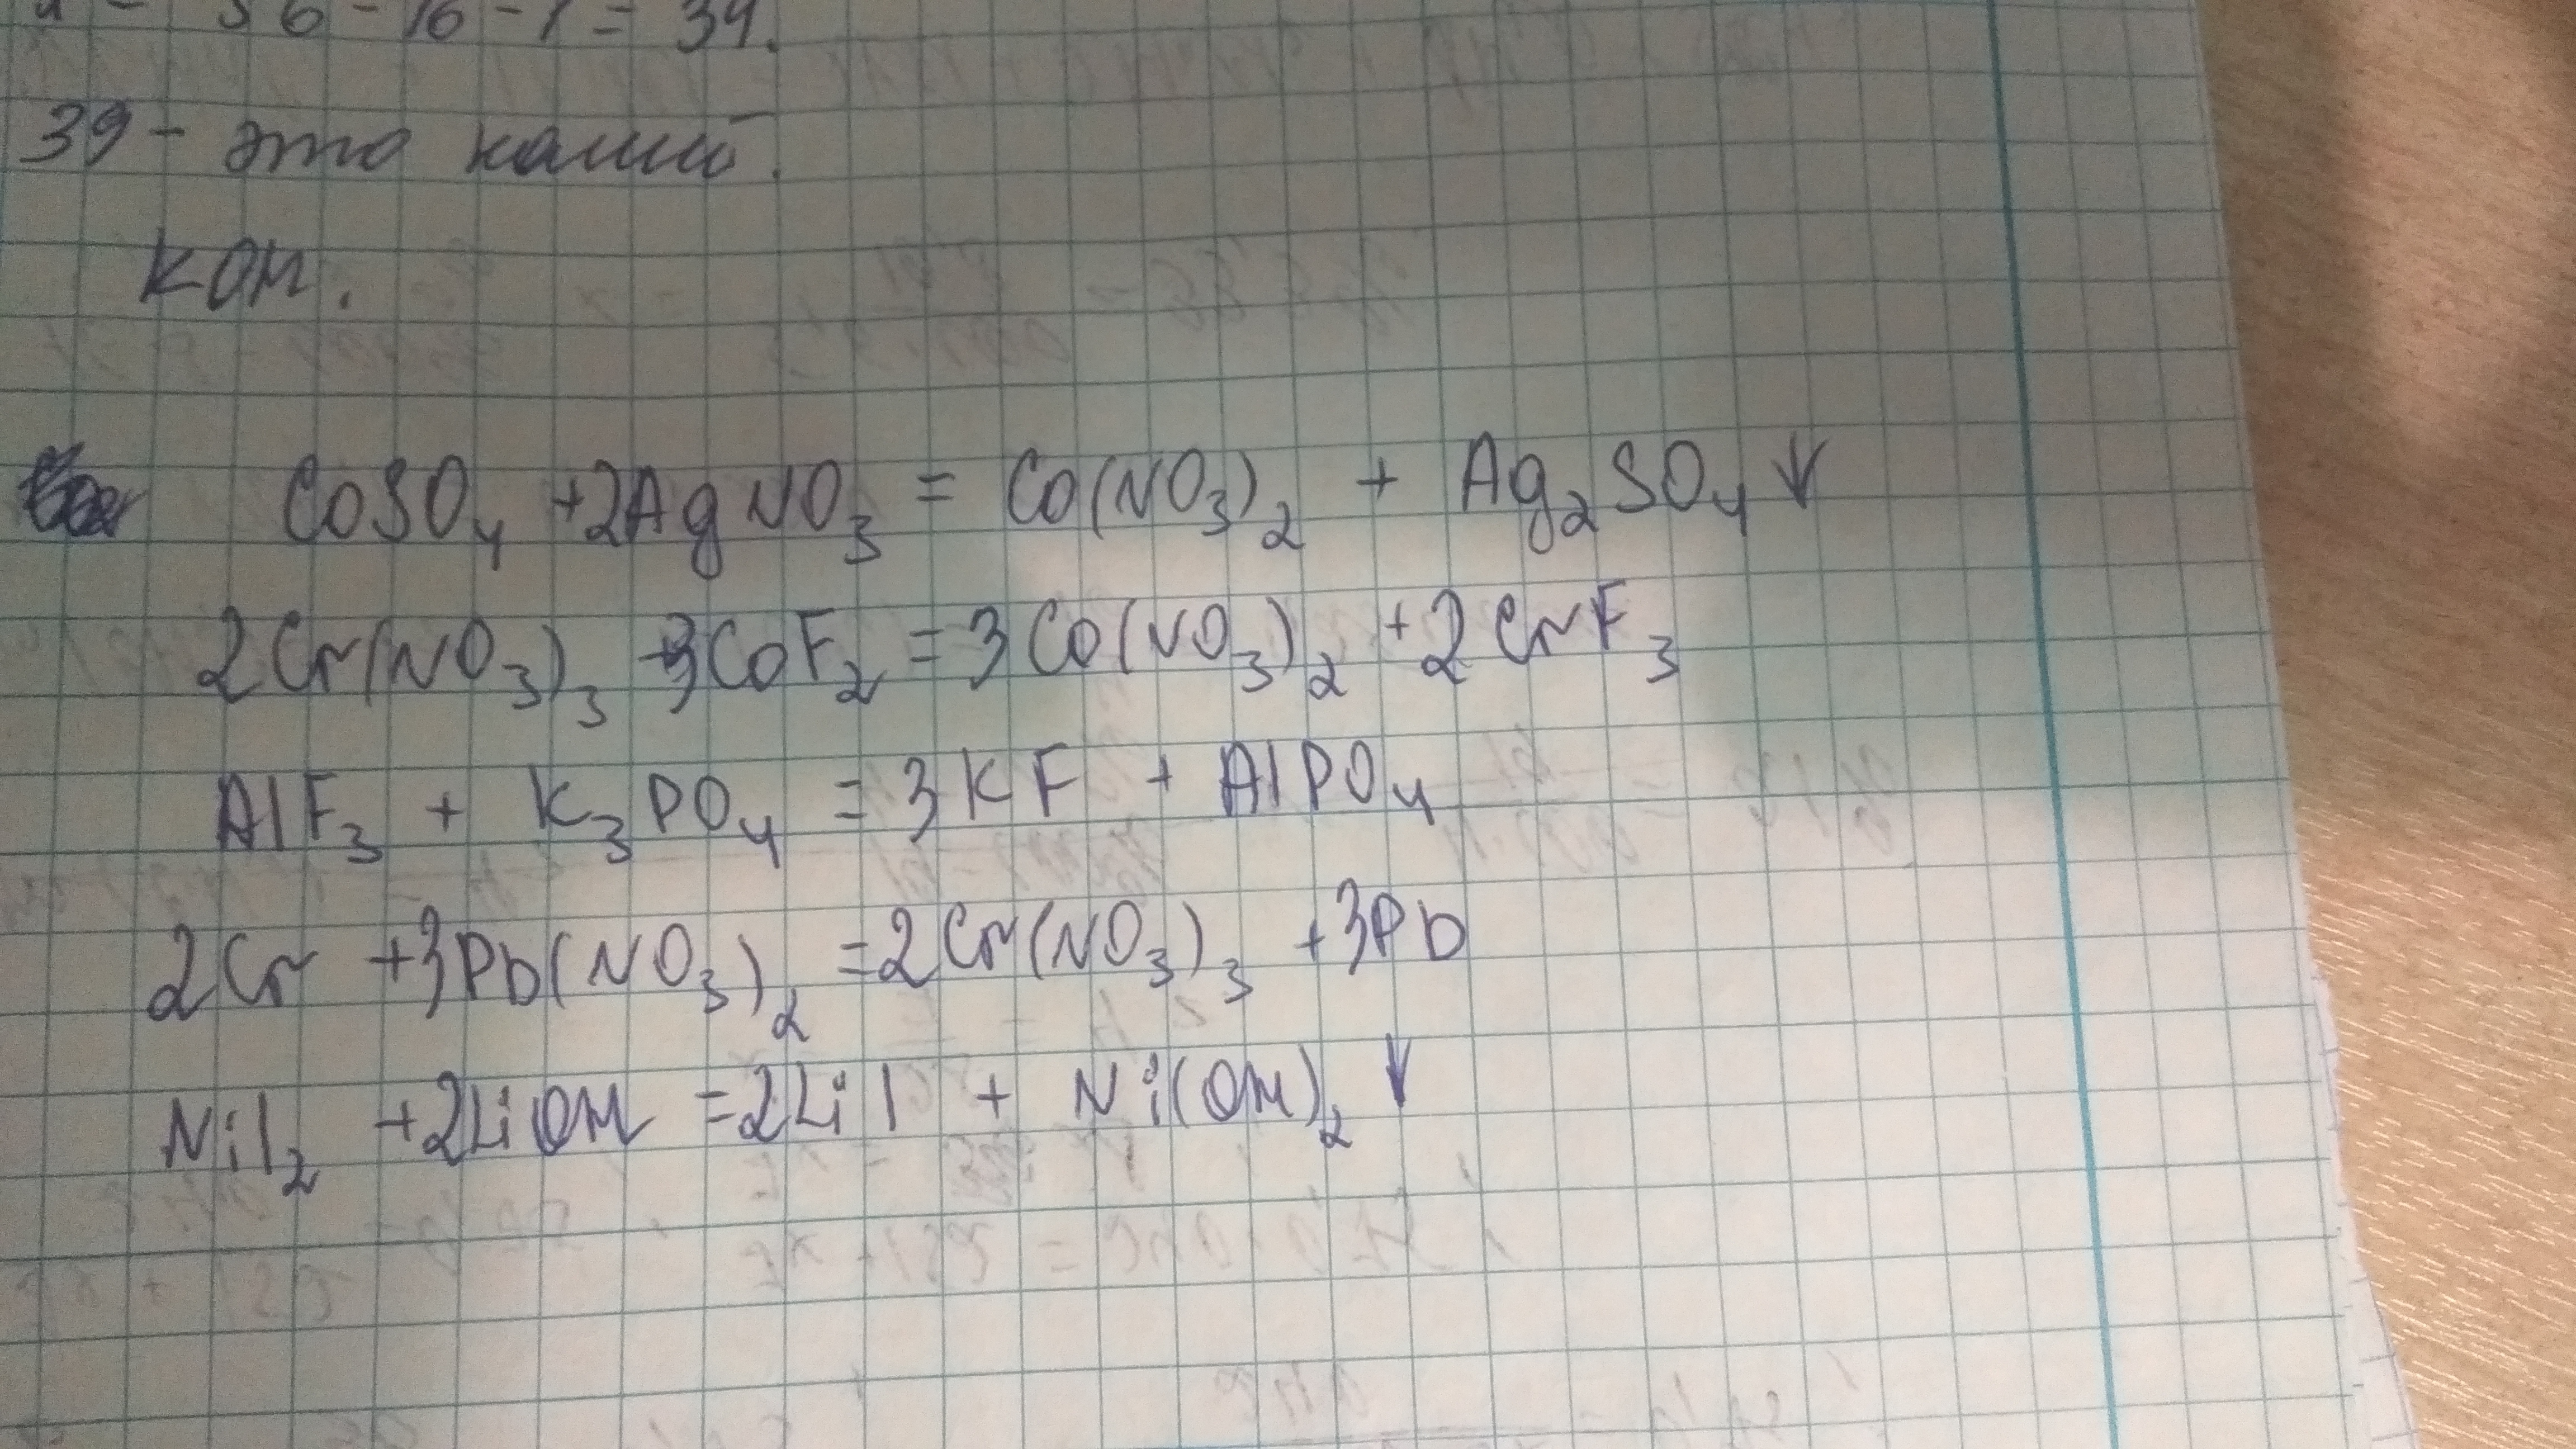 56 - 16 - 1 = 39.
39 - это калий.
KOH.
CoSO₄ +2AgNO₃ = Co(NO₃)₂ + Ag₂SO₄↓
2Cr(NO₃)₃ +3CoF₂ = 3Co(NO₃)₂ +2CrF₃
AlF₃ + K₃PO₄ = 3KF + AlPO₄
2Cr +3Pb(NO₃)₂ =2Cr(NO₃)₃ +3Pb
NiI₂ +2LiOH =2LiI + Ni(OH)₂↓